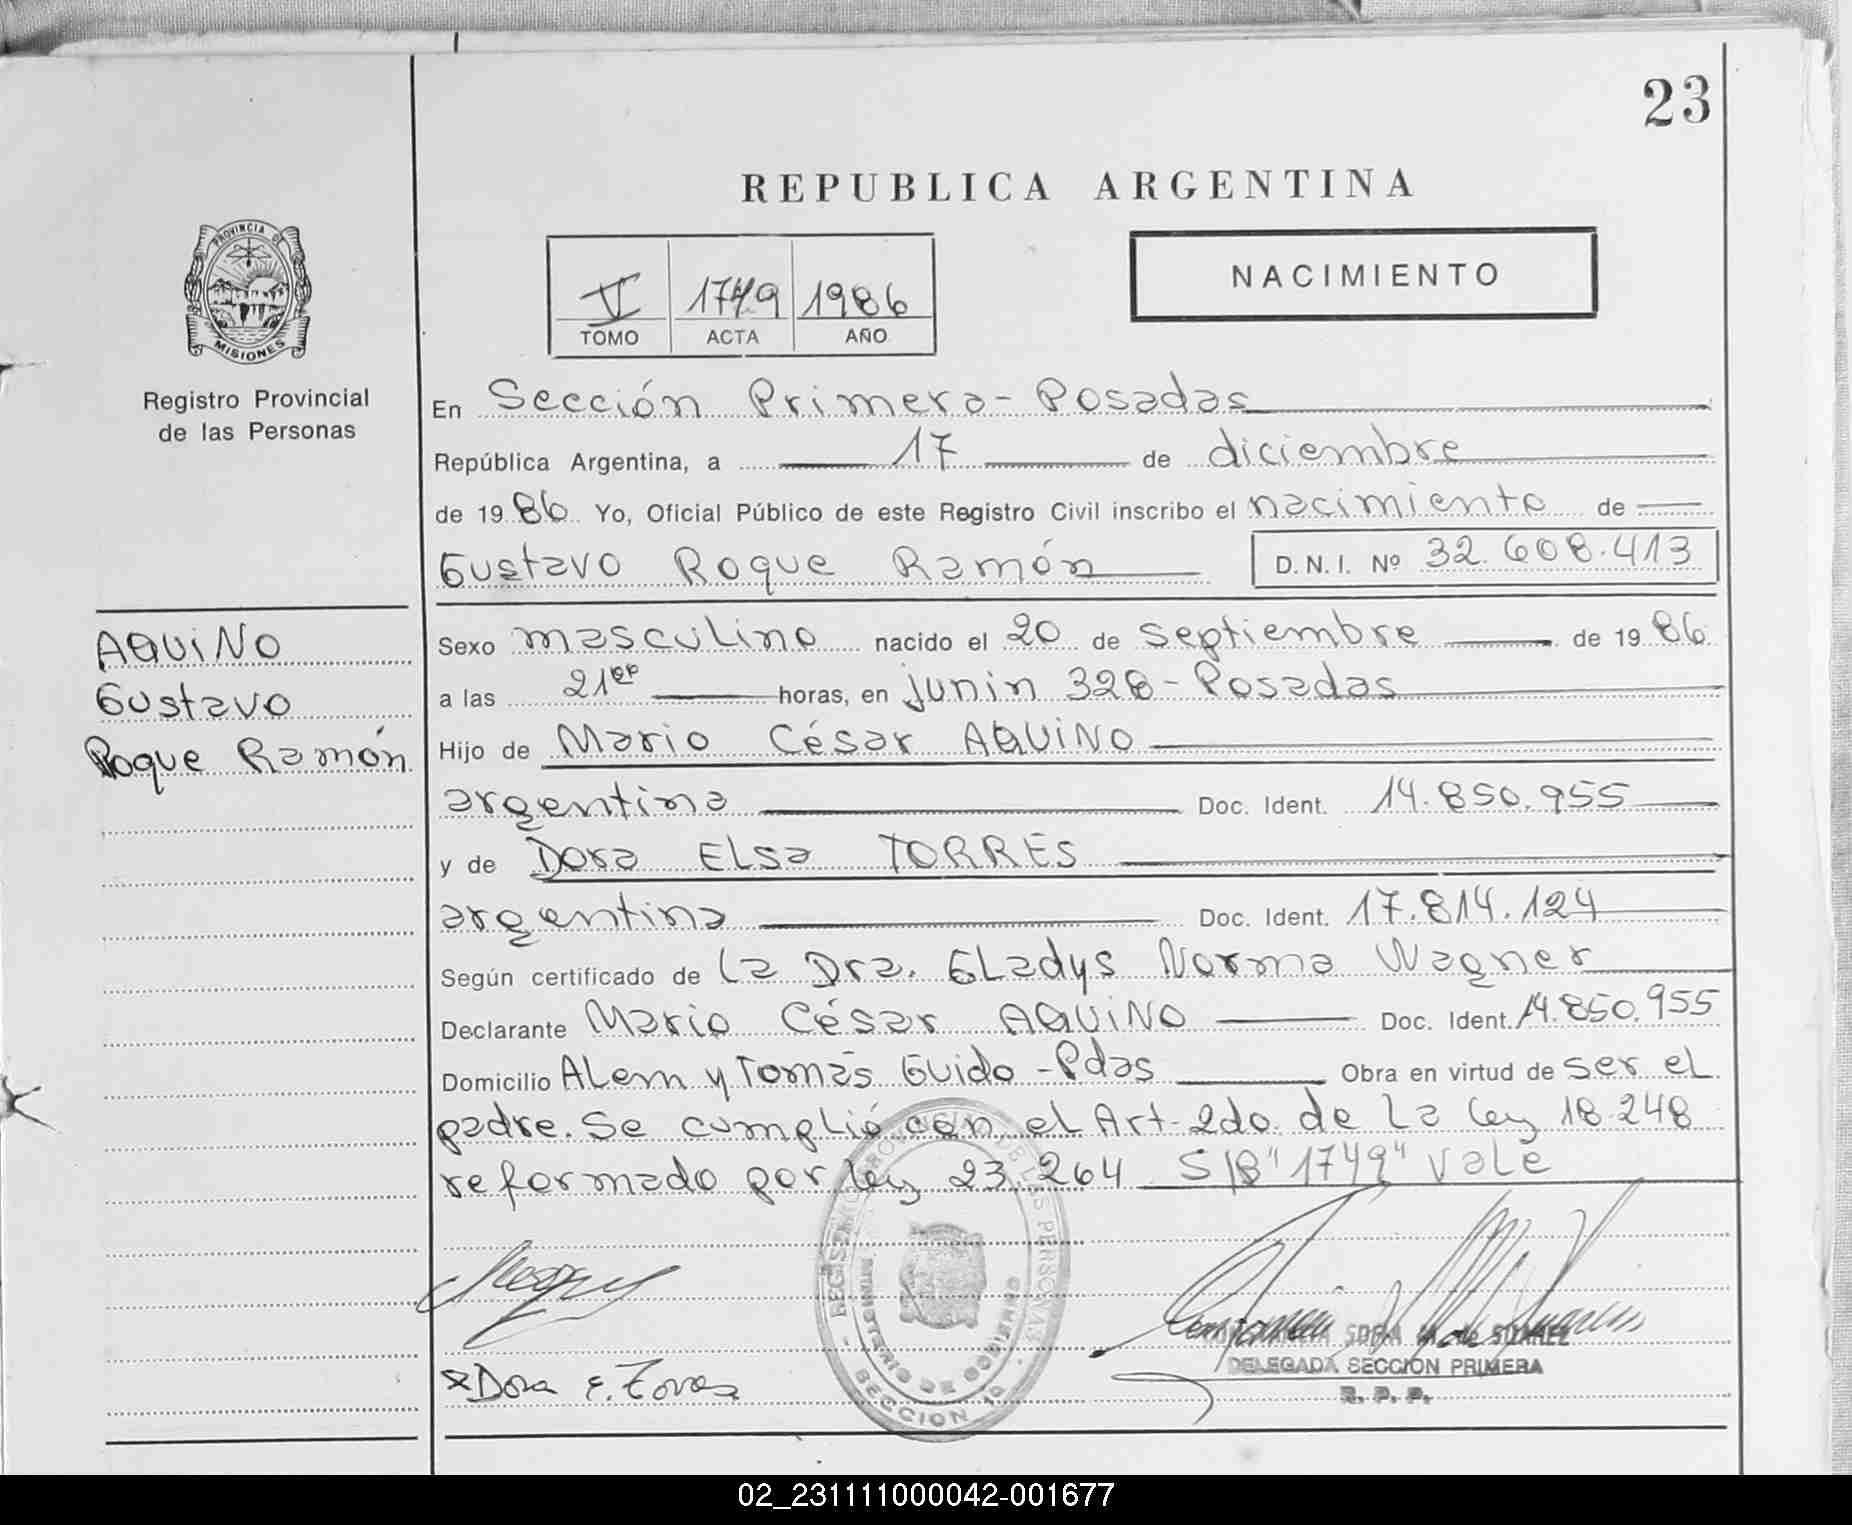 23
REPUBLICA ARGENTINA
PROVINCIA DE
MISIONES
Registro Provincial
de las Personas
V 1749 1986
TOMO ACTA AÑO
NACIMIENTO
En Sección Primera - Posadas
República Argentina, a 17 de diciembre
de 1986 Yo, Oficial Público de este Registro Civil inscribo el nacimiento de
Gustavo Roque Ramón D.N.I. Nº 32.608.413
AQUINO
Gustavo
Roque Ramón
Sexo masculino nacido el 20 de septiembre de 1986
a las 21 horas, en junin 328 - Posadas
Hijo de Mario César AQUINO
argentina Doc. Ident. 14.850.955
y de Dora Elsa TORRES
argentina Doc. Ident. 17.814.124
Según certificado de la Dra. Gladys Norma Wagner
Declarante Mario César AQUINO Doc. Ident. 14.850.955
Domicilio Alem y Tomás Guido - Pdas Obra en virtud de ser el
padre. Se cumplió con el Art. 2do. de la ley 18.248
reformado por ley 23.264 S/B "1749" Vale
MINISTERIO DE GOBIERNO
SECCION 1a
Dora E. Torres
DELEGADA SECCION PRIMERA
R. P. P.
02_231111000042-001677